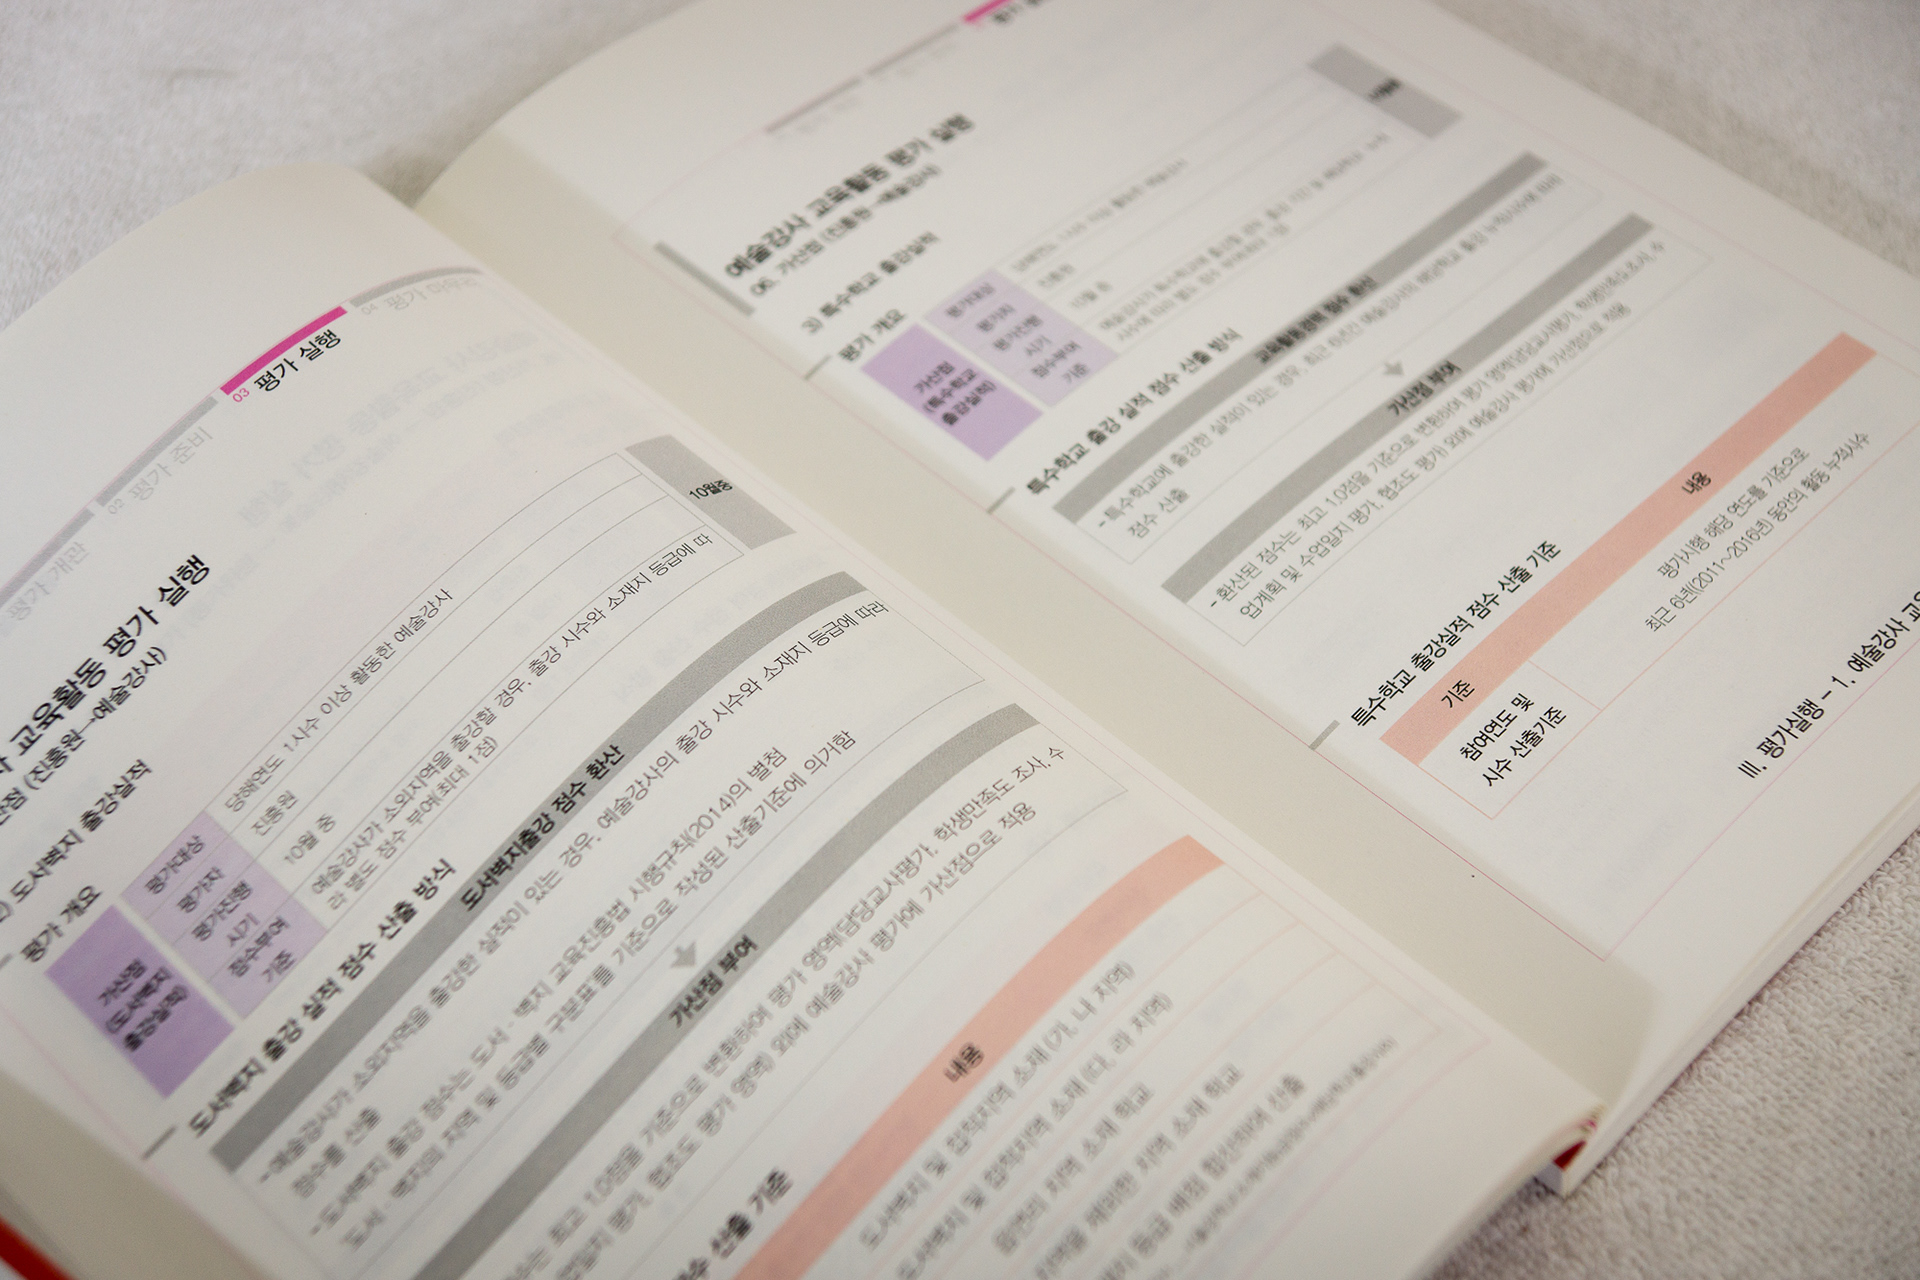 평가 개관
02 평가 준비
03 평가 실행
04 평가 마무리
교육활동 평가 실행
(진흥원→예술강사)
도서벽지 출강실적
평가 개요
10월중
가산점
(도서벽지
출강실적)
평가대상
당해연도 1시수 이상 활동한 예술강사
평가자
진흥원
평가진행
시기
10월 중
점수부여
기준
예술강사가 소외지역을 출강할 경우, 출강 시수와 소재지 등급에 따
라 별도 점수 부여(최대 1점)
도서벽지 출강 실적 점수 산출 방식
도서벽지출강 점수 환산
- 예술강사가 소외지역을 출강한 실적이 있는 경우, 예술강사의 출강 시수와 소재지 등급에 따라
점수를 산출
- 도서벽지 출강 점수는 도서 · 벽지 교육진흥법 시행규칙(2014)의 별첨
도서 · 벽지의 지역 및 등급별 구분표를 기준으로 작성된 산출기준에 의거함
가산점 부여
점수는 최고 1.0점을 기준으로 변환하여 평가 영역(담당교사평가, 학생만족도 조사, 수
업일지 평가, 협조도 평가 영역) 외에 예술강사 평가에 가산점으로 적용
점수 산출 기준
내용
도서벽지 및 접적지역 소재 (가, 나 지역)
도서벽지 및 접적지역 소재 (다, 라 지역)
읍면리 지역 소재 학교
지역을 제외한 지역 소재 학교
등급 배점 합산하여 산출
예술강사 교육활동 평가 실행
06. 가산점 (진흥원→예술강사)
3) 특수학교 출강실적
평가 개요
가산점
(특수학교
출강실적)
평가대상
평가자
진흥원
평가진행
시기
10월 중
점수부여
기준
특수학교 출강 실적 점수 산출 방식
교육활동경력 점수 환산
- 특수학교에 출강한 실적이 있는 경우, 최근 6년간 예술강사의 해당학교 출강 누적시수에 따라
점수 산출
가산점 부여
- 환산된 점수는 최고 1.0점을 기준으로 변환하여 평가 영역(담당교사평가, 학생만족도조사, 수
업계획 및 수업일지 평가, 협조도 평가) 외에 예술강사 평가에 가산점으로 적용
특수학교 출강실적 점수 산출 기준
기준
내용
참여연도 및
시수 산출기준
평가시행 해당 연도를 기준으로
최근 6년((2011~2016년) 동안의 활동 누적시수
III. 평가실행 – 1. 예술강사 교육